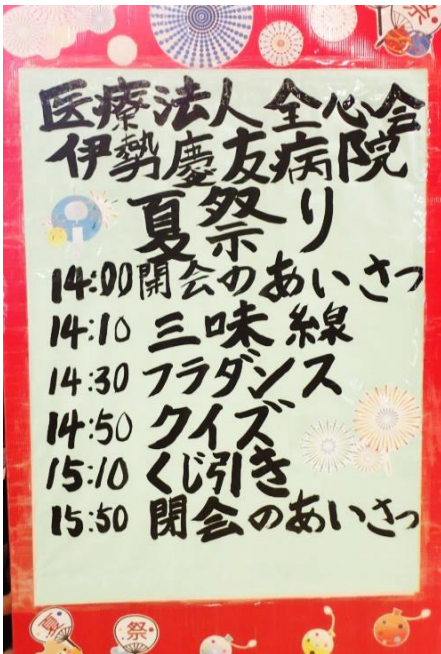 祭
医療法人全心会
伊勢慶友病院
夏祭り
14:00開会のあいさつ
14:10 三味線
14:30 フラダンス
14:50 クイズ
15:10 くじ引き
15:50 閉会のあいさつ
夏
祭